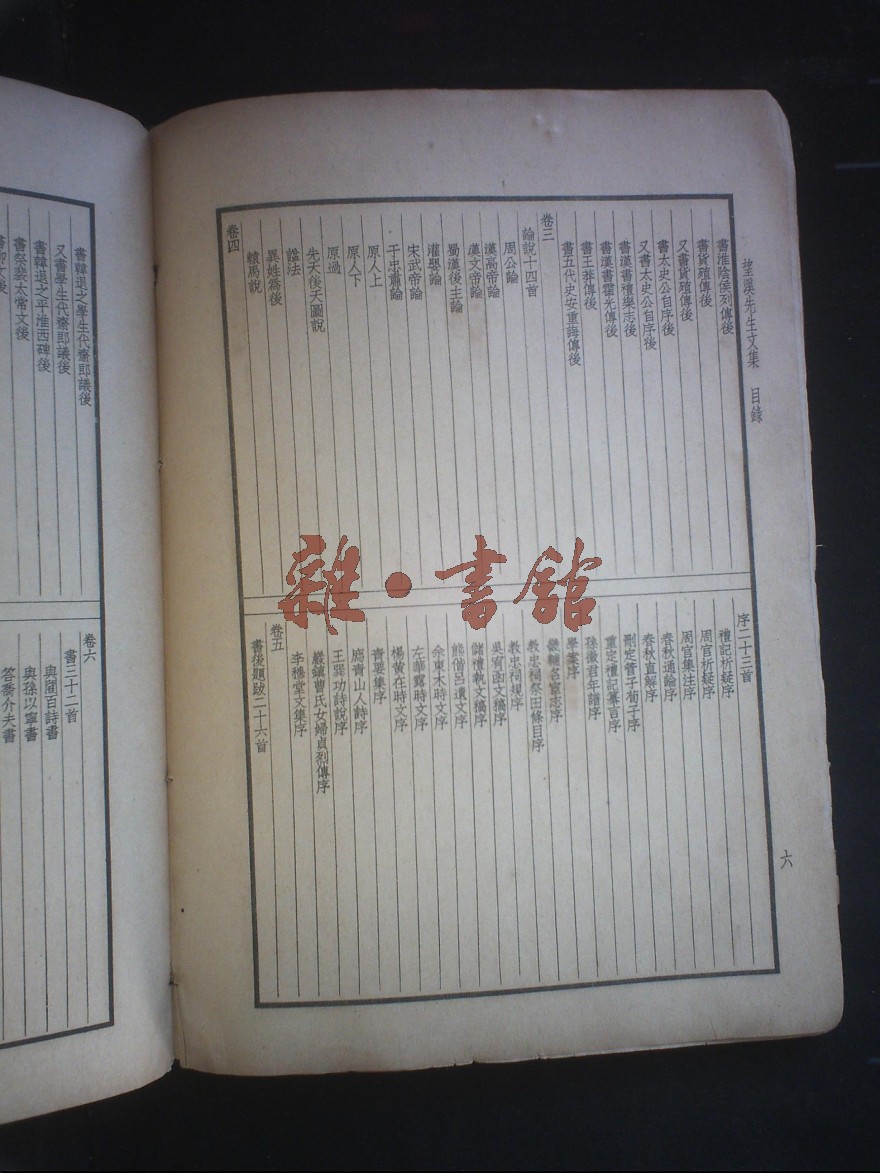 望溪先生文集 目錄
書淮陰侯列傳後
書貨殖傳後
又書貨殖傳後
書太史公自序後
又書太史公自序後
書漢書禮樂志後
書漢書霍光傳後
書王莽傳後
書五代史安重誨傳後
卷三
論說十四首
周公論
漢高帝論
漢文帝論
蜀漢後主論
灌嬰論
宋武帝論
于忠肅論
原人上
原人下
原過
先天後天圖說
諡法
異姓為後
轅馬說
卷四
序二十三首
禮記析疑序
周官析疑序
周官集注序
春秋通論序
春秋直解序
刪定管子荀子序
重定禮記纂言序
孫徵君年譜序
學案序
畿輔名宦志序
教忠祠祭田條目序
教忠祠規序
吳宥函文稿序
儲禮執文稿序
熊偕呂遺文序
余東木時文序
左華露時文序
楊黃在時文序
青要集序
廌青山人詩序
王巽功詩說序
巖鎮曹氏女婦貞烈傳序
李穆堂文集序
卷五
書後題跋二十六首
六
書韓退之學生代齋郎議後
又書學生代齋郎議後
書韓退之平淮西碑後
書祭裴太常文後
卷六
書三十二首
與閻百詩書
與孫以寧書
答喬介夫書
雜·書館